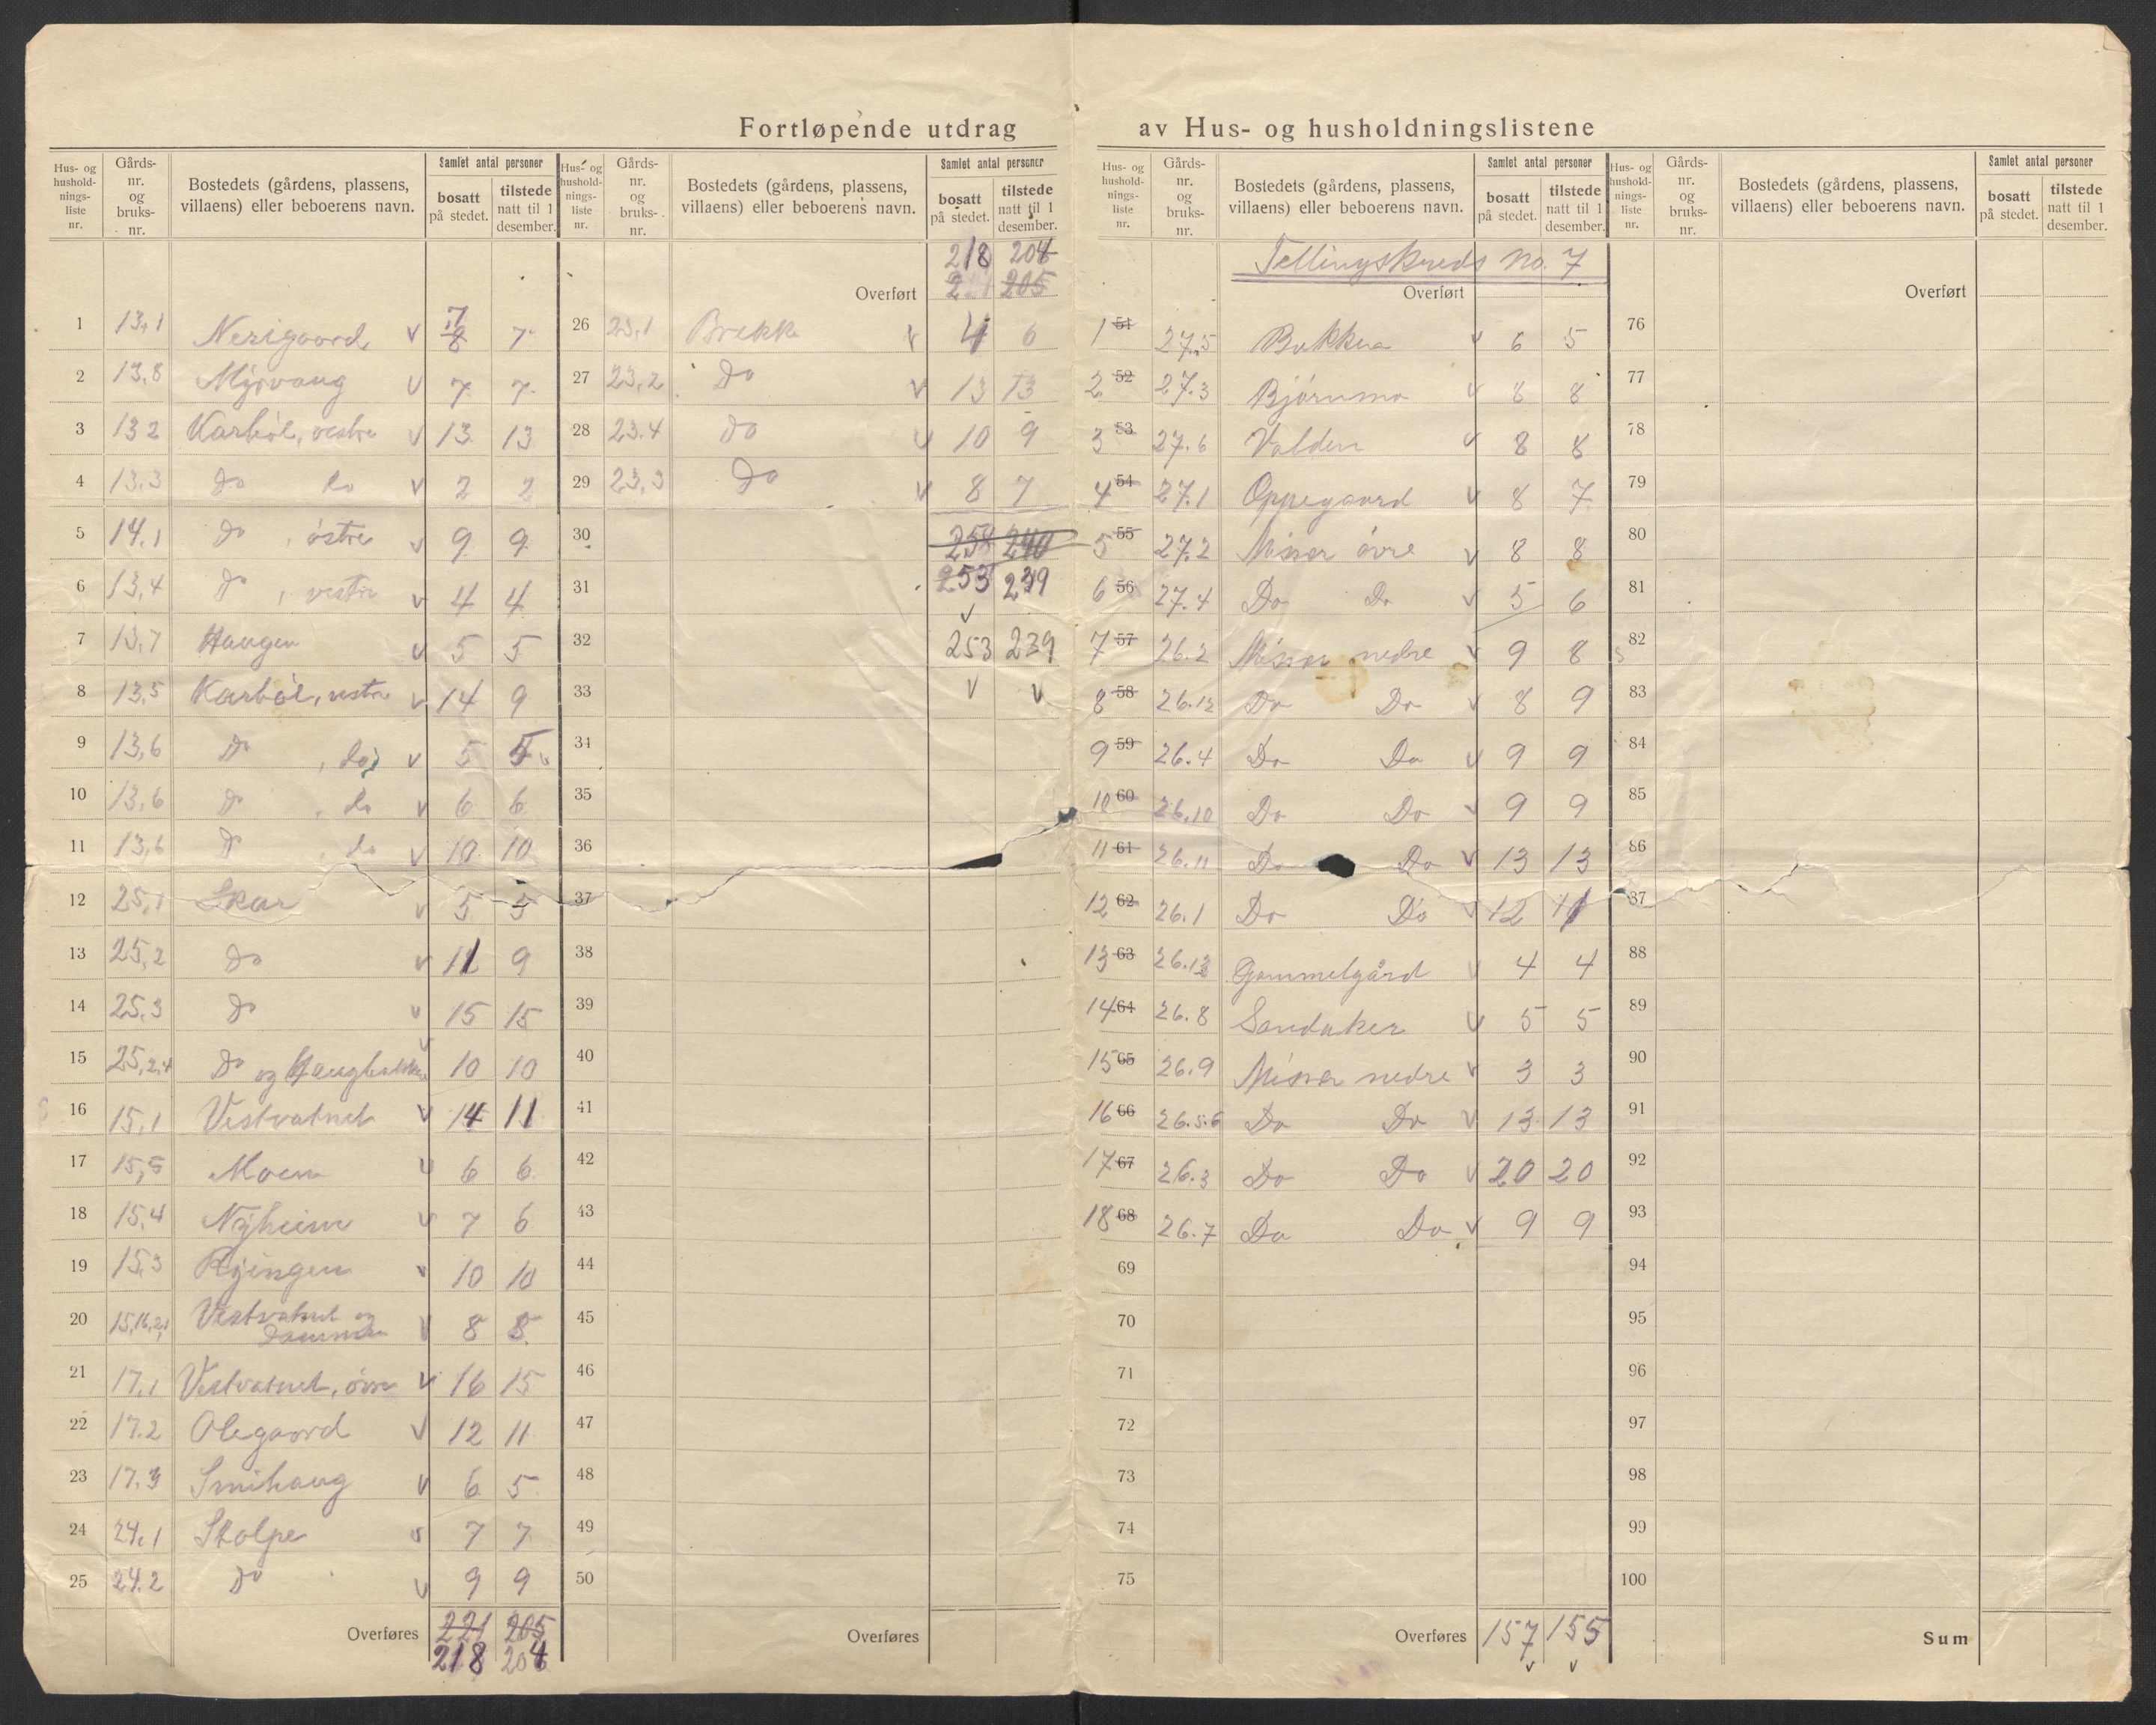 Fortløpende utdrag av Hus- og husholdningslistene
Hus- og husholdningsliste nr. Gårds-nr. og bruks-nr. Bostedets (gårdens, plassens, villaens) eller beboerens navn. Samlet antal personer bosatt på stedet. tilstede natt til 1 desember.
1 13,1 Nerigaard v 7 8 7
2 13,8 Myrvang v 7 7
3 13 2 Karbøl, vestre v 13 13
4 13.3 Do do v 2 2
5 14.1 Do, østre v 9 9
6 13,4 Do, vestre v 4 4
7 13,7 Haugen v 5 5
8 13,5 Karbøl, vestre v 14 9
9 13,6 Do, do v 5 5
10 13,6 Do, do v 6 6
11 13,6 Do, do v 10 10
12 25,1 Skar v 5 5
13 25,2 Do v 11 9
14 25,3 Do v 15 15
15 25,2,4 Do og v 10 10
16 15,1 Vestvatnet v 14 11
17 15,5 Moen v 6 6
18 15,4 Nyheim v 7 6
19 15,3 Ryingen v 10 10
20 Vestvatnet og v 8 8
21 17,1 Vestvatnet, øvre v 16 15
22 17.2 Olegaard v 12 11
23 17.3 Smihaug v 6 5
24 24,1 Stolpe v 7 7
25 24.2 Do v 9 9
Overføres 221 205
218 204
Hus- og husholdningsliste nr. Gårds-nr. og bruks-nr. Bostedets (gårdens, plassens, villaens) eller beboerens navn. Samlet antal personer bosatt på stedet. tilstede natt til 1 desember.
218 204
Overført 205
26 23,1 Brekke v 4 6
27 23,2 Do v 13 13
28 23.4 Do v 10 9
29 23,3 Do v 8 7
30 258 240
31 253 239
v
32 253 239
33 v v
34
35
36
37
38
39
40
41
42
43
44
45
46
47
48
49
50
Overføres
Hus- og husholdningsliste nr. Gårds-nr. og bruks-nr. Bostedets (gårdens, plassens, villaens) eller beboerens navn. Samlet antal personer bosatt på stedet. tilstede natt til 1 desember.
Tellingskreds no. 7
Overført
1 51 27.5 Bakken v 6 5
2 52 27.3 Bjørnmo v 8 8
3 53 27.6 Volden v 8 8
4 54 27.1 Oppegaard v 8 7
5 55 27.2 Misvær øvre v 8 8
6 56 27.4 Do Do v 5 6
7 57 26.2 Misvær nedre v 9 8
8 58 26.12 Do Do v 8 9
9 59 26.4 Do Do v 9 9
10 60 26.10 Do Do v 9 9
11 61 26.11 Do Do v 13 13
12 62 26.1 Do Do v 12 11
13 63 26.13 Gammelgård v 4 4
14 64 26.8 Sandaker v 5 5
15 65 26.9 Misvær nedre v 3 3
16 66 26.5.6 Do Do v 13 13
17 67 26.3 Do Do v 20 20
18 68 26.7 Do Do v 9 9
69
70
71
72
73
74
75
Overføres 157 155
v v
Hus- og husholdningsliste nr. Gårds-nr. og bruks-nr. Bostedets (gårdens, plassens, villaens) eller beboerens navn. Samlet antal personer bosatt på stedet. tilstede natt til 1 desember.
Overført
76
77
78
79
80
81
82
83
84
85
86
87
88
89
90
91
92
93
94
95
96
97
98
99
100
Sum